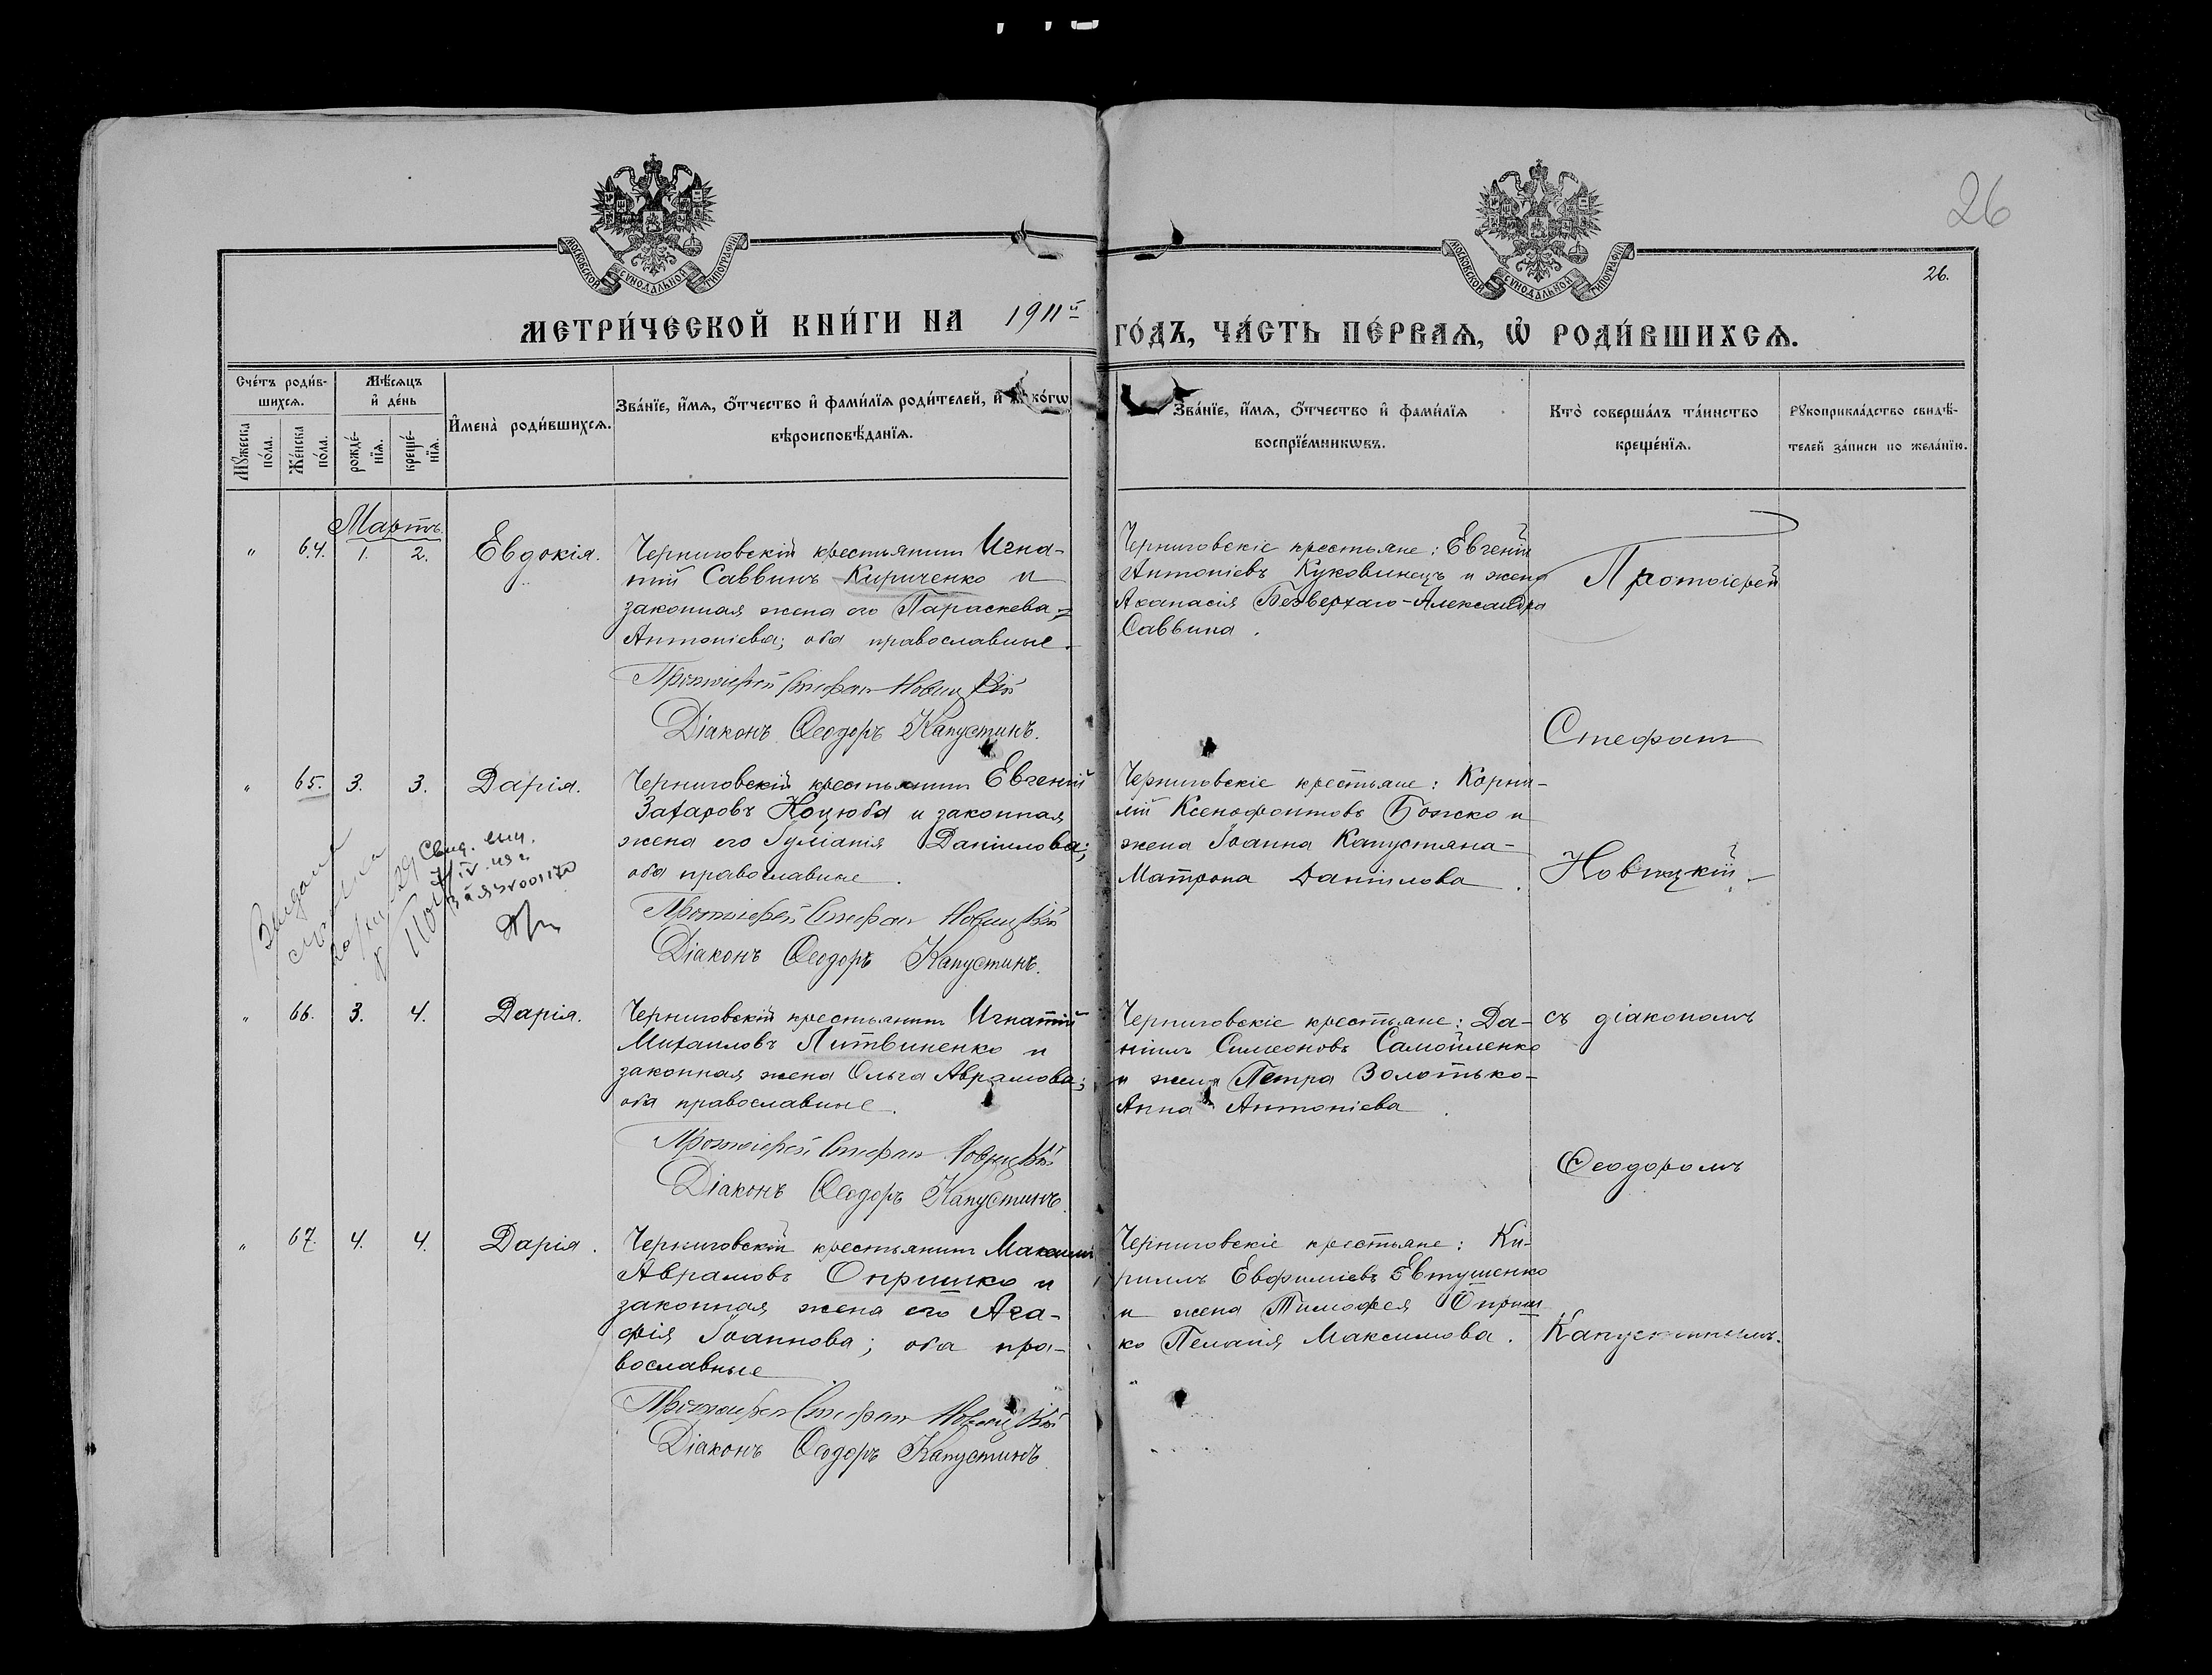 26
26.
МОСКОВСКОЙ СѴНОДАЛЬНОЙ ТИПОГРАФІИ
МОСКОВСКОЙ СѴНОДАЛЬНОЙ ТИПОГРАФІИ
МЕТРИ́ЧЕСКОЙ КНИ́ГИ НА 1911й ГО́ДЪ, ЧА́СТЬ ПЕ́РВАѦ, Ѡ РОДИ́ВШИХСѦ.
Сче́тъ роди́в-
шихсѧ.
Мꙋ́жеска по́ла.
Же́нска по́ла.
Мѣ́сѧцъ
и҆ де́нь
рожде́-
нїѧ.
креще́-
нїѧ.
И҆мена̀ роди́вшихсѧ.
Зва́нїе, и҆́мѧ, ѻ҆́тчество и҆ фами́лїѧ роди́телей, и҆ како́гѡ
вѣроисповѣ́данїѧ.
Зва́нїе, и҆́мѧ, ѻ҆́тчество и҆ фами́лїѧ
воспрїе́мникѡвъ.
Кто̀ соверша́лъ та́инство
креще́нїѧ.
Рꙋкоприкла́дство свидѣ́-
телей за́писи по жела́нїю.
Мартъ.
" 64. 1. 2. Евдокія.
Черниговскій крестьянинъ Игна-
тій Саввинъ Кириченко и
законная жена его Параскева
Антоніева; оба православные.
Протоіерей Стефан Новицкій
Діаконъ Ѳеодоръ Капустинъ.
Черниговскіе крестьяне: Евгеній
Антоніевъ Куковинецъ и жена
Аѳанасія Безверхаго-Александра
Саввина.
Протоіерей
Стефанъ
" 65. 3. 3. Дарія.
Черниговскій крестьянинъ Евгеній
Захаровъ Коцюба и законная
жена его Іуліанія Даніилова;
оба православные.
Протоіерей Стефан Новицкій
Діаконъ Ѳеодоръ Капустинъ.
Черниговскіе крестьяне: Корни-
лій Ксенофонтовъ Божко и
жена Іоанна Капустяна-
Матрона Даніилова.
Новицкій
" 66. 3. 4. Дарія.
Черниговскій крестьянинъ Игнатій
Михаиловъ Литвиненко и
законная жена Ольга Аврамова;
оба православные.
Протоіерей Стефан Новицкій
Діаконъ Ѳеодоръ Капустинъ.
Черниговскіе крестьяне: Да-
ніилъ Симеоновъ Самойленко
и жена Петра Золотько-
Анна Антоніева.
съ діакономъ
Ѳеодоромъ
" 67. 4. 4. Дарія.
Черниговскій крестьянинъ Максимъ
Аврамовъ Опришко и
законная жена его Ага-
фія Іоаннова; оба пра-
вославные
Протоіерей Стефан Новицкій
Діаконъ Ѳеодоръ Капустинъ.
Черниговскіе крестьяне: Ки-
риллъ Евфиміевъ Евтушенко
и жена Тимофея Оприш
ко Пелагія Максимова.
Капустинымъ.